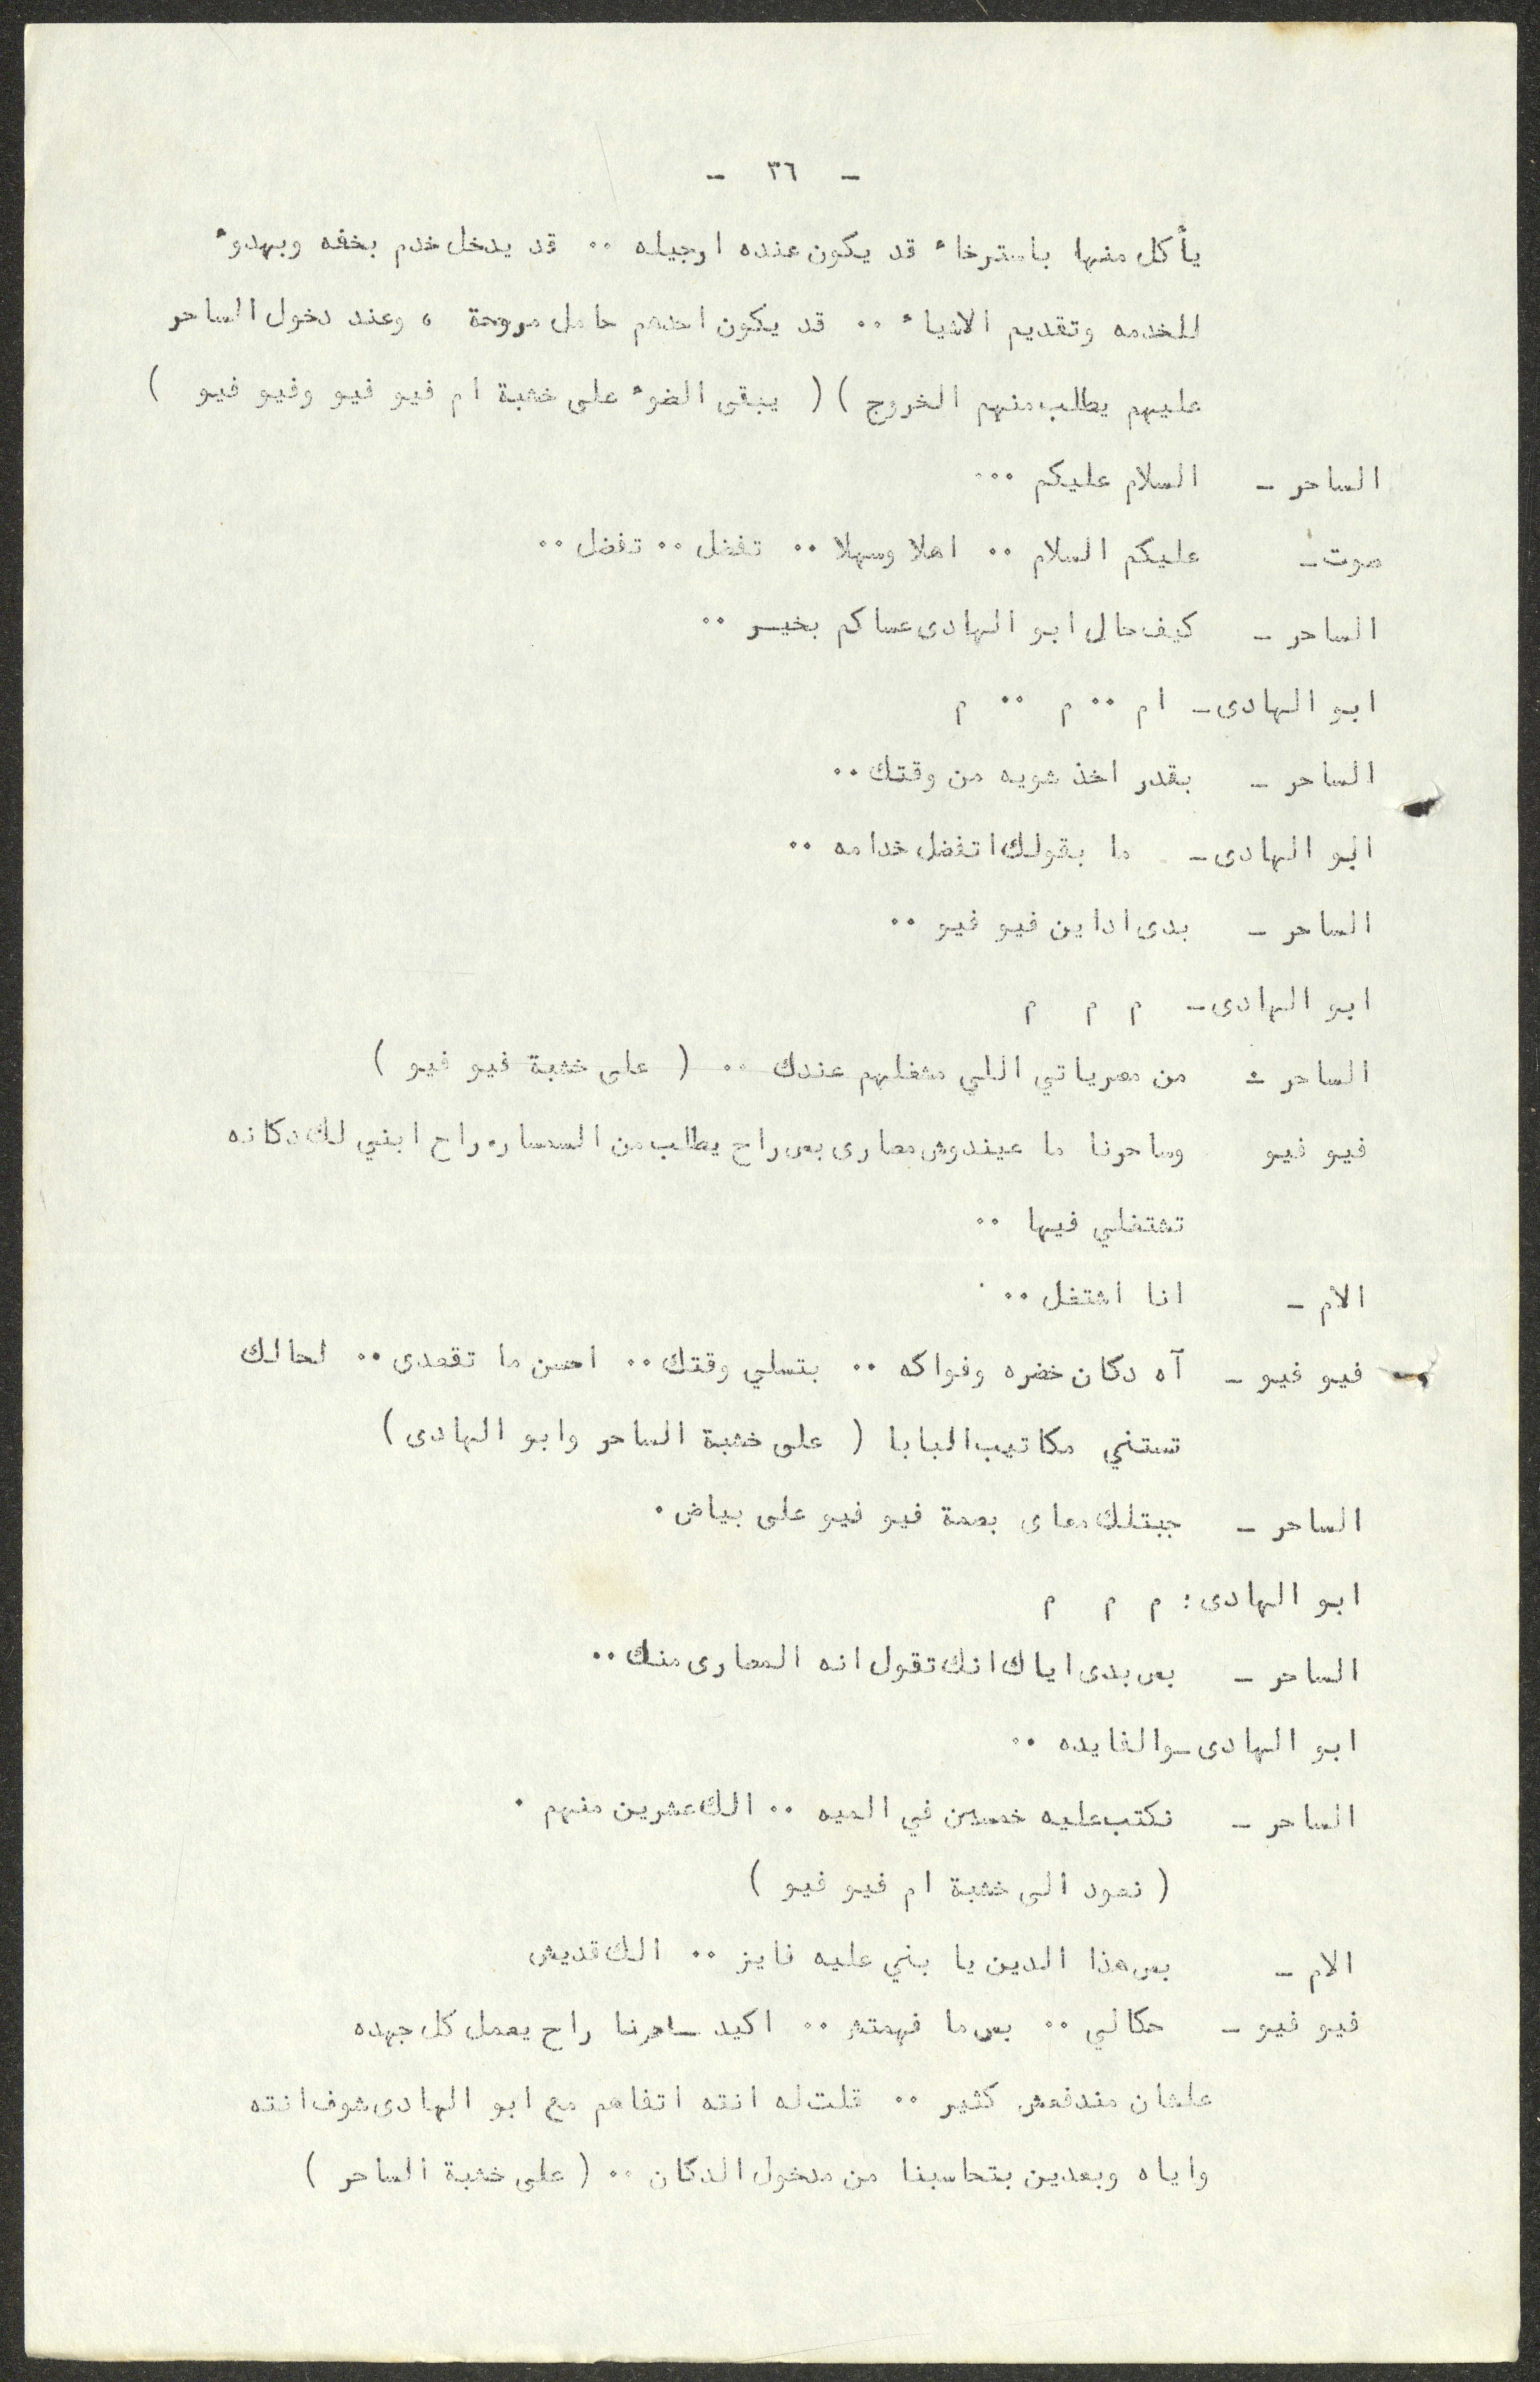 - ٣٦ -
يأكل منها باسترخاء قد يكون عنده ارجيله .. قد يدخل خدم بخفه وبهدوء
للخدمه وتقديم الاشياء .. قد يكون احدهم حامل مروحة ، وعند دخول الساحر
عليهم يطلب منهم الخروج ) ( يبقى الضوء على خشبة ام فيو فيو وفيو فيو )
الساحر - السلام عليكم ...
صوت - عليكم السلام .. اهلا وسهلا .. تفضل .. تفضل ..
الساحر - كيف حال ابو الهادى عساكم بخير ..
ابو الهادى - ام .. م .. م
الساحر - بقدر اخذ شويه من وقتك ..
ابو الهادى - ما بقولك اتفضل خدامه ..
الساحر - بدى اداين فيو فيو ..
ابو الهادى - م م م
الساحر - من مصرياتي اللي مشغلهم عندك .. ( على خشبة فيو فيو )
فيو فيو وساحرنا ما عيندوش مصارى بس راح يطلب من السمساره راح ابني لك دكانه
تشتغلي فيها ..
الام - انا اشتغل ..
فيو فيو - آه دكان خضره وفواكه .. بتسلي وقتك .. احسن ما تقعدى .. لحالك
تستني مكاتيب البابا ( على خشبة الساحر وابو الهادى )
الساحر - جبتلك معاى بصمة فيو فيو على بياض .
ابو الهادى : م م م
الساحر - بس بدى اياك انك تقول انه المصارى منك ..
ابو الهادى - والفايده ..
الساحر - نكتب عليه خمسين في الميه .. الك عشرين منهم .
( نعود الى خشبة ام فيو فيو )
الام - بس هذا الدين يا بني عليه فايز .. الك قديش
فيو فيو - حكالي .. بس ما فهمتش .. اكيد ساحرنا راح يعمل كل جهده
علشان مندفعش كثير .. قلت له انته اتفاهم مع ابو الهادى شوف انته
واياه وبعدين بتحاسبنا من مدخول الدكان .. ( على خشبة الساحر )